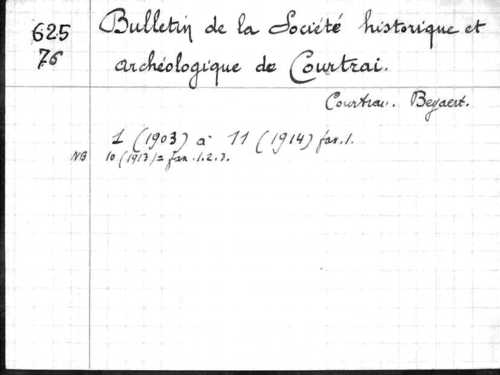 625 Bulletin de la Société historique et
76 archéologique de Courtrai.
Courtrai. Beyaert.
1 (1903) à 11 (1914) fas. 1.
NB 10 (1913) = fas. 1. 2. 3.